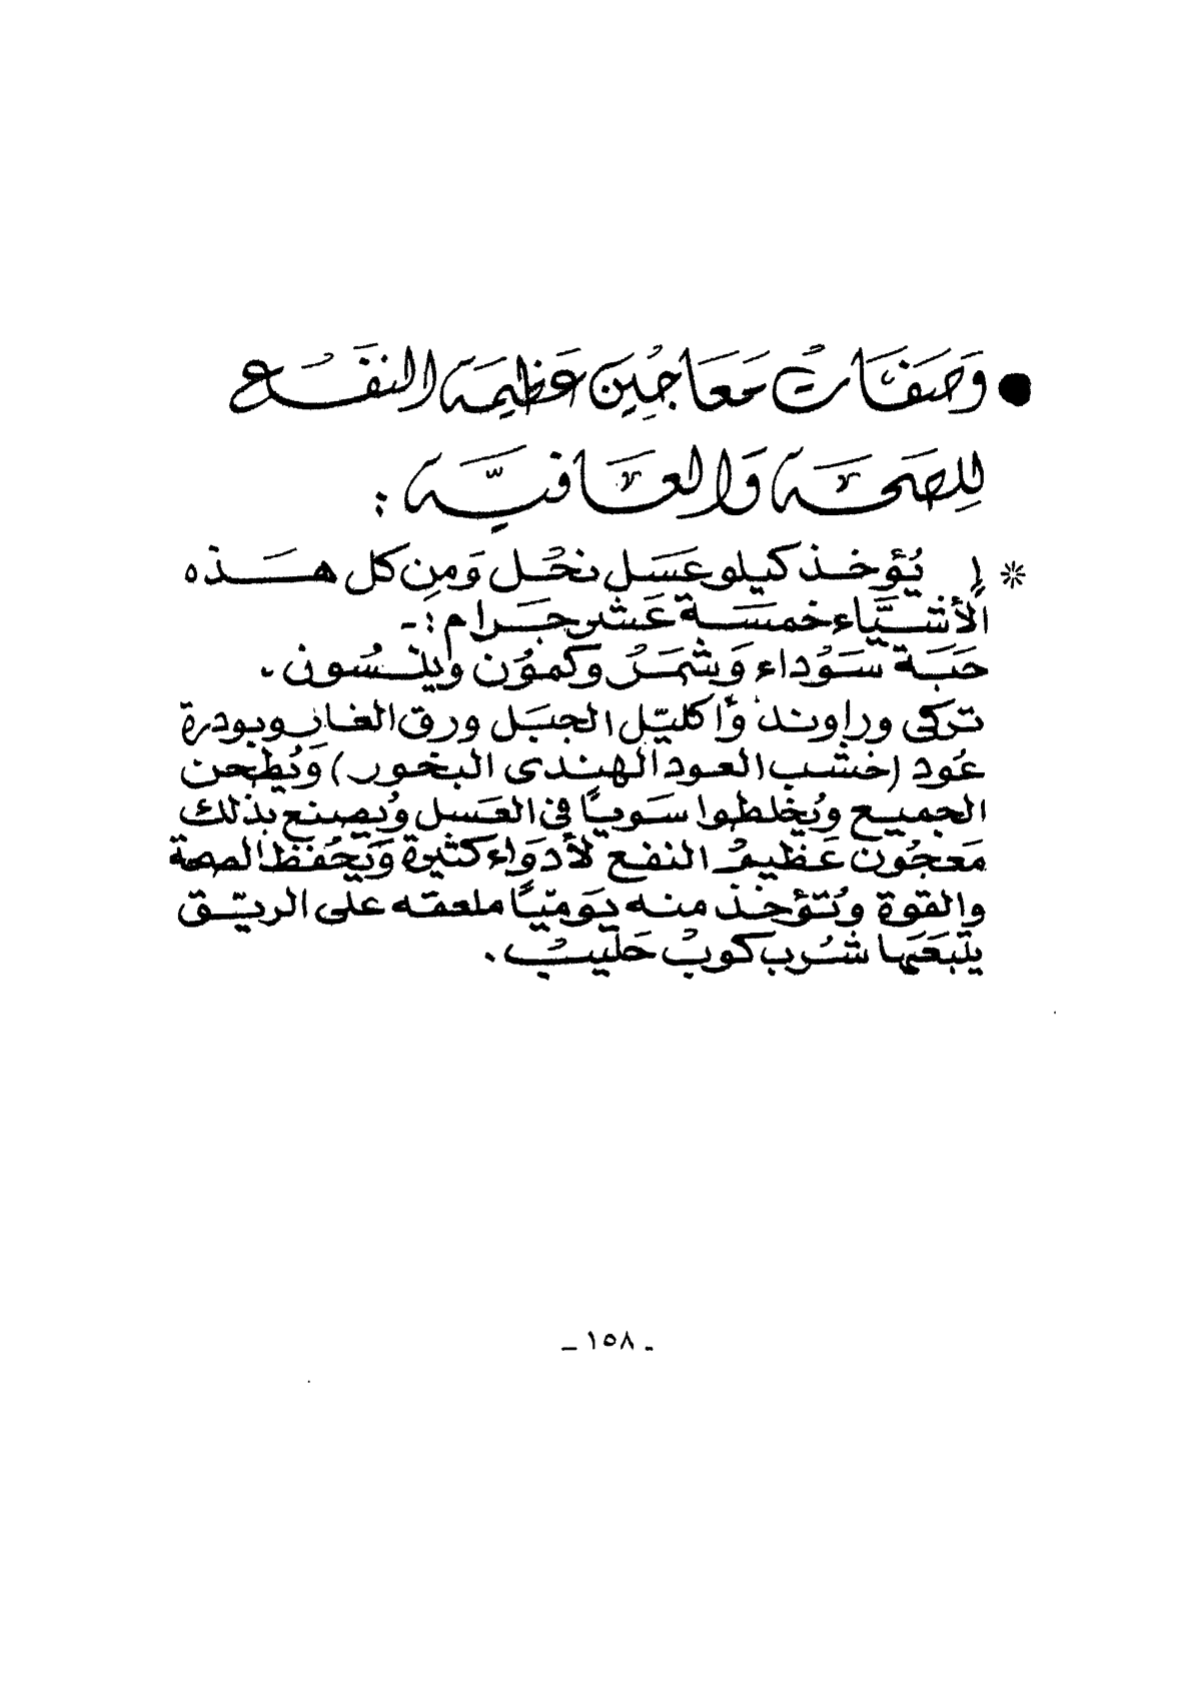 ● وَصَفَاتُ مَعَاجِين عَظيمَة النفَع
لِلصَحَة وَالعَافيَّة :
* ١ يُؤخذ كيلو عَسَل نحُل وَمِن كل هَذه
الأشيَّاء خمسَة عَشر جَرام :ـ
حَبَة سَوُداء وَشمَرُ وكموُن وينسُون .
تركى وراوند وأكليّل الجبَل ورق الغار وبودرة
عُود (خشب العود الهندى البخور) وَيُطحن
الجميع ويُخلطوا سَوياً فى العَسل ويُصنع بذلك
مَعجُون عَظيمُ النفع لأدوَاء كثيرة وَيَحُفظ الصحة
والقوة وتُؤخذ منه يَوميّاً ملعقه على الريّق
يتبعَها شُرب كوبُ حَليبُ .
ـ ١٥٨ ـ